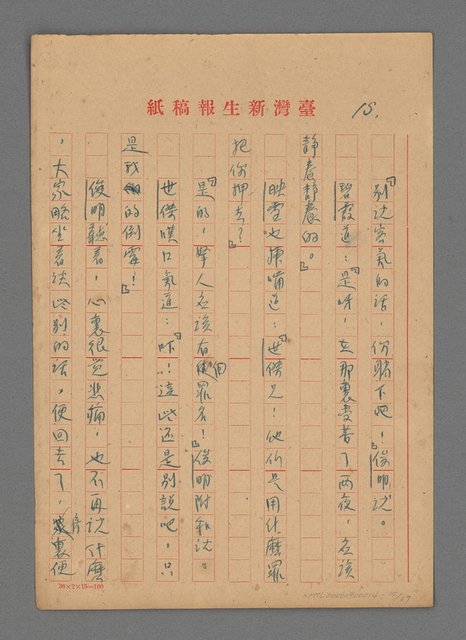 臺灣新生報稿紙
15.
「別說客氣的話，你躺下吧！」俊明說。
碧霞道：「是呀，在那裏受苦了兩夜，應該
靜養靜養的。」
映雪也插嘴道：「世傑兄！他們是用什麼罪
把你押去？」
「是的，擧人應該有個罪名！」俊明附和說。
世傑嘆口氣道：「吓！這些還是別說吧，只
是我的倒霉！」
俊明聽着，心裏很覺悲痛，也不再說什麼
，大家略坐着談些別的話，便回去了，房裏便
36×2×15=100